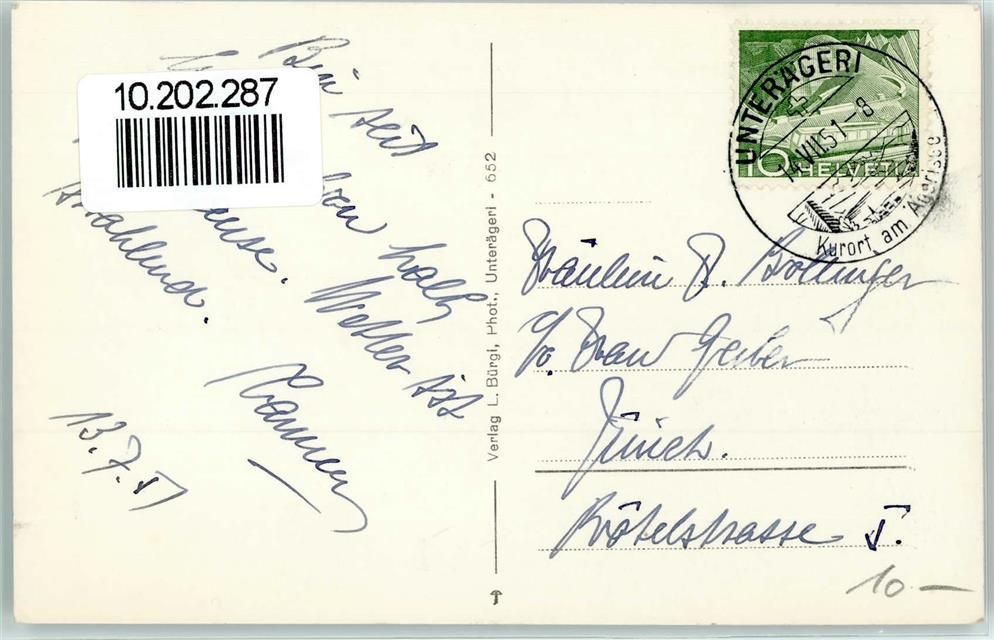 10.202.287
Bin seit
halb
Wetter ist
strahlend.
13.7.51
Verlag L. Bürgi, Phot., Unterägeri - 652
UNTERÄGERI
14.VII.51-8
Kurort am Ägerisee
10 HELVETIA
Fräulein R. Bollinger
c/o. Frau Geiber
Zürich.
Rötelstrasse 5.
10 —